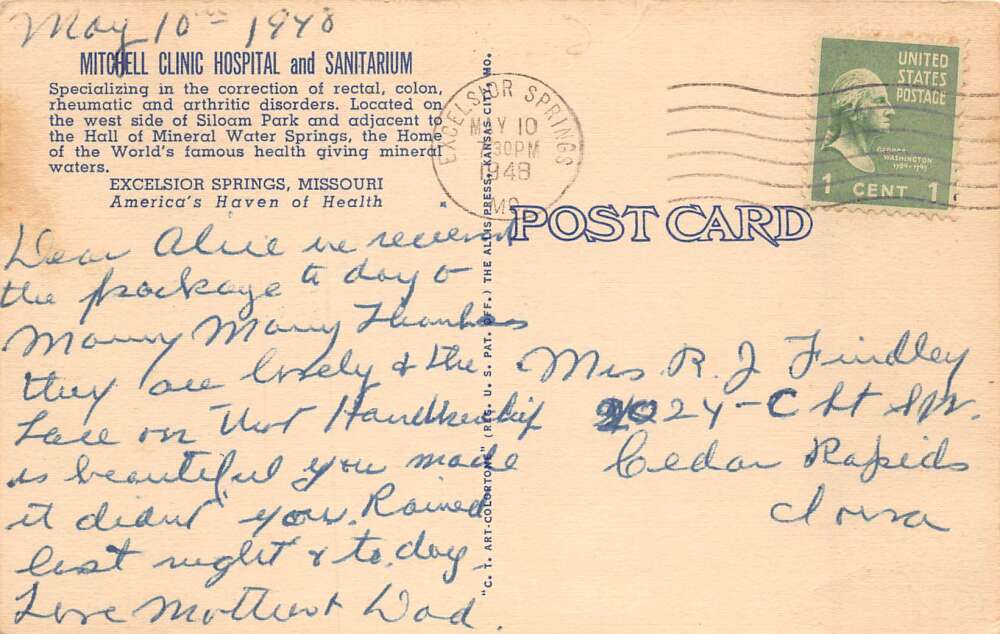 May 10th 1948
MITCHELL CLINIC HOSPITAL and SANITARIUM
Specializing in the correction of rectal, colon,
rheumatic and arthritic disorders. Located on
the west side of Siloam Park and adjacent to
the Hall of Mineral Water Springs, the Home
of the World's famous health giving mineral
waters.
EXCELSIOR SPRINGS, MISSOURI
America's Haven of Health
Dear Alice we received
the package to day &
Many Many Thanks
they are lovely & the
Lace on that Handkerchif
is beautiful you made
it didnt you. Rained
last night & to day.
Love Mother & Dad.
"C. T. ART-COLORTONE" (REG. U. S. PAT. OFF.) THE ALLIS PRESS, KANSAS CITY, MO.
EXCELSIOR SPRINGS
MAY 10
30PM
1948
MO.
UNITED
STATES
POSTAGE
GEORGE
WASHINGTON
1789-1797
1 CENT 1
POST CARD
Mrs. R. J Findley
2024-C St SW.
Cedar Rapids
Iowa